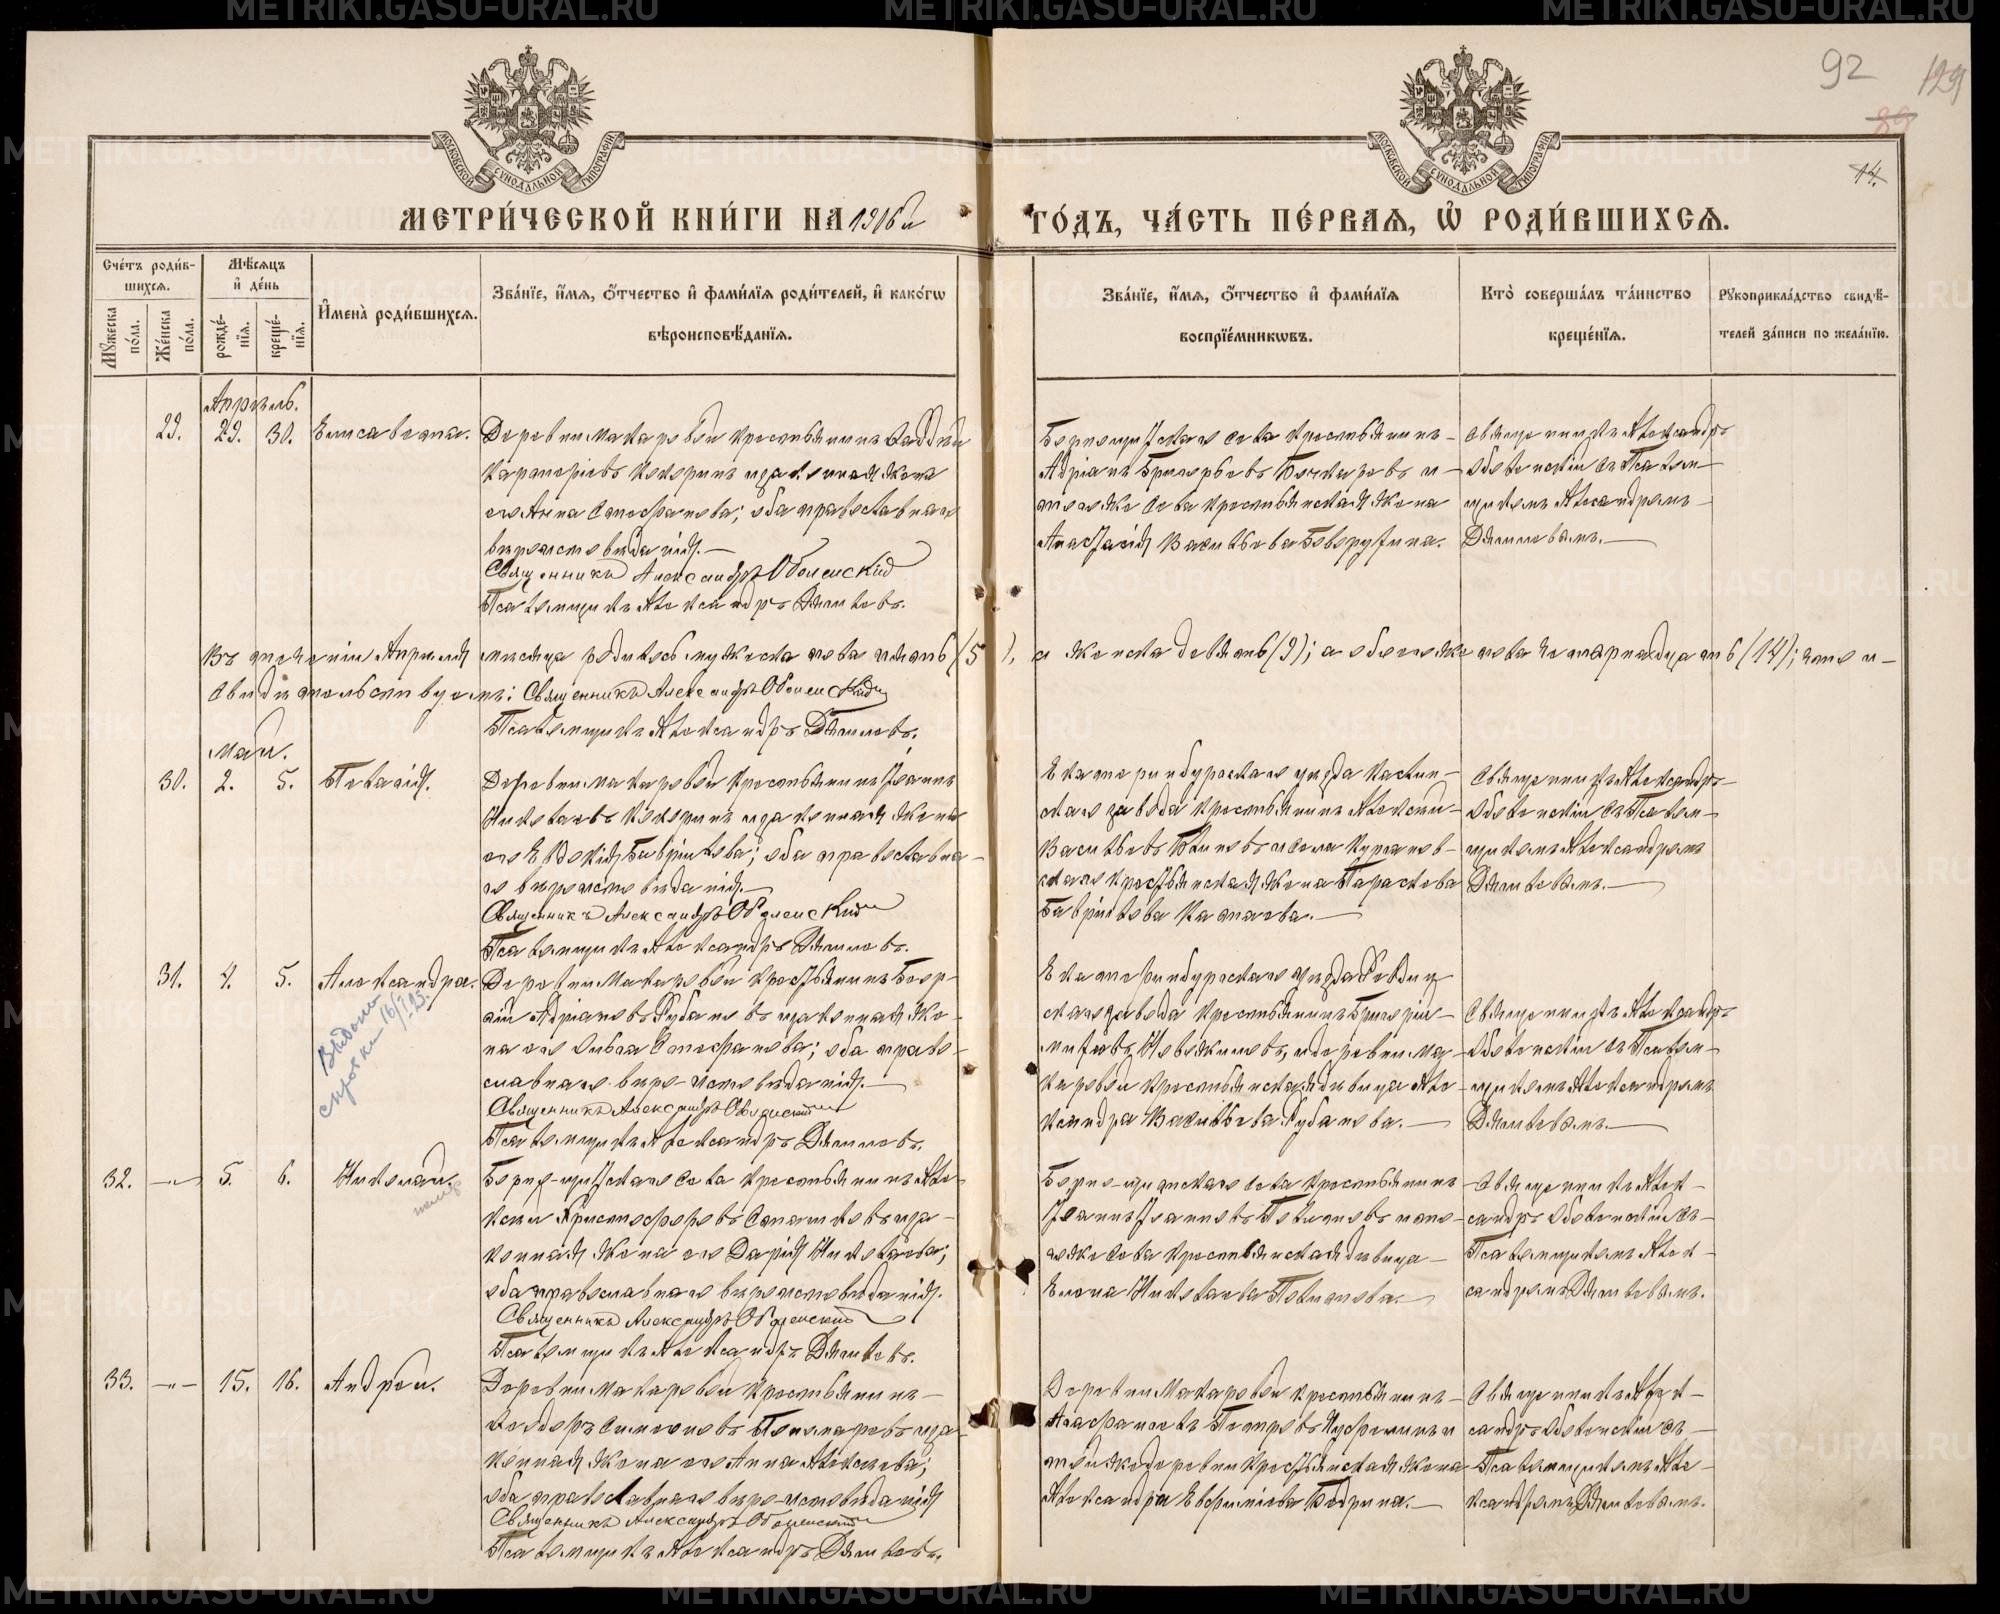 92
МОСКОВСКОЙ СѴНОДАЛЬНОЙ ТИПОГРАФІИ
МОСКОВСКОЙ СѴНОДАЛЬНОЙ ТИПОГРАФІИ
14.
МЕТРИ́ЧЕСКОЙ КНИ́ГИ НА 1916й ГО́ДЪ, ЧА́СТЬ ПЕ́РВАЯ, Ѡ РОДИ́ВШИХСЯ.
Сче́тъ роди́в-
шихся.
Мꙋжеска по́ла.
Же́нска по́ла.
Мѣ́сяцъ и де́нь
рожде́нїя.
креще́нїя.
И҆мена̀ роди́вшихся.
Зва́нїе, и҆́мя, ѻ҆́тчество и҆ фами́лїя роди́телей, и҆ како́гѡ
вѣроисповѣ́данїя.
Зва́нїе, и҆́мя, ѻ҆́тчество и҆ фами́лїя
воспрїе́мникѡвъ.
Кто̀ соверша́лъ та́инство
креще́нїя.
Рꙋкоприкла́дство свидѣ́-
телей за́писи по жела́нїю.
Апрѣль.
29. 29. 30. Елисавета.
Деревни Макаровой крестьянинъ
Кокоринъ и законная жена
его Анна Стефанова; оба православнаго
вѣроисповѣданія.
Священникъ Александръ Оболенскій
Псаломщикъ Александръ Дягилевъ.
села крестьянинъ
Адріанъ Григорьевъ Бочкаревъ и
того же села крестьянская жена
Анастасія Васильева
Священникъ Александръ
Оболенскій съ Псалом-
щикомъ Александромъ
Дягилевымъ.
Въ теченіи Апрѣля мѣсяца родилось мужеска пола пять (5), а женска девять (9); а обоего же пола четырнадцать (14); что и
свидѣтельствуемъ: Священникъ Александръ Оболенскій
Псаломщикъ Александръ Дягилевъ.
Май.
30. 2. 5. Пелагія.
Деревни Макаровой крестьянинъ Іоаннъ
Николаевъ Кокоринъ и законная жена
его Евдокія Гавріилова; оба православна-
го вѣроисповѣданія.
Священникъ Александръ Оболенскій
Псаломщикъ Александръ Дягилевъ.
Екатеринбургскаго уѣзда Каслин-
скаго завода крестьянинъ Алексѣй
Васильевъ Блиновъ и села Курганов-
скаго крестьянская жена Параскева
Гавріилова
Священникъ Александръ
Оболенскій съ Псалом-
щикомъ Александромъ
Дягилевымъ.
31. 4. 5. Александра.
16/I 25.
Деревни Макаровой крестьянинъ Геор-
гій Адріановъ Рубановъ и законная же-
на его Ольга Стефанова; оба право-
славнаго вѣроисповѣданія.
Священникъ Александръ Оболенскій
Псаломщикъ Александръ Дягилевъ.
Екатеринбургскаго уѣзда Ревдин-
скаго завода крестьянинъ Григорій
Новожиловъ, и деревни Ма-
каровой крестьянская дѣвица Але-
ксандра Васильева Рубанова.
Священникъ Александръ
Оболенскій съ Псалом-
щикомъ Александромъ
Дягилевымъ.
32. 5. 6. Николай.
села крестьянинъ Але-
ксѣй Христофоровъ и за-
конная жена его Дарія Николаева;
оба православнаго вѣроисповѣданія.
Священникъ Александръ Оболенскій
Псаломщикъ Александръ Дягилевъ.
села крестьянинъ
Іоаннъ Іоанновъ и то-
го же села крестьянская дѣвица
Елена Николаева
Священникъ Алек-
сандръ Оболенскій съ
Псаломщикомъ Алек-
сандромъ Дягилевымъ.
33. 15. 16. Андрей.
Деревни Макаровой крестьянинъ
Ѳеодоръ Симеоновъ Пономаревъ и за-
конная жена его Анна Алексѣева;
оба православнаго вѣроисповѣданія
Священникъ Александръ Оболенскій
Псаломщикъ Александръ Дягилевъ.
Деревни Макаровой крестьянинъ
Петровъ и
той же деревни крестьянская жена
Александра Евфиміева
Священникъ Алек-
сандръ Оболенскій съ
Псаломщикомъ Але-
ксандромъ Дягилевымъ.
METRIKI.GASU-URAL.RU